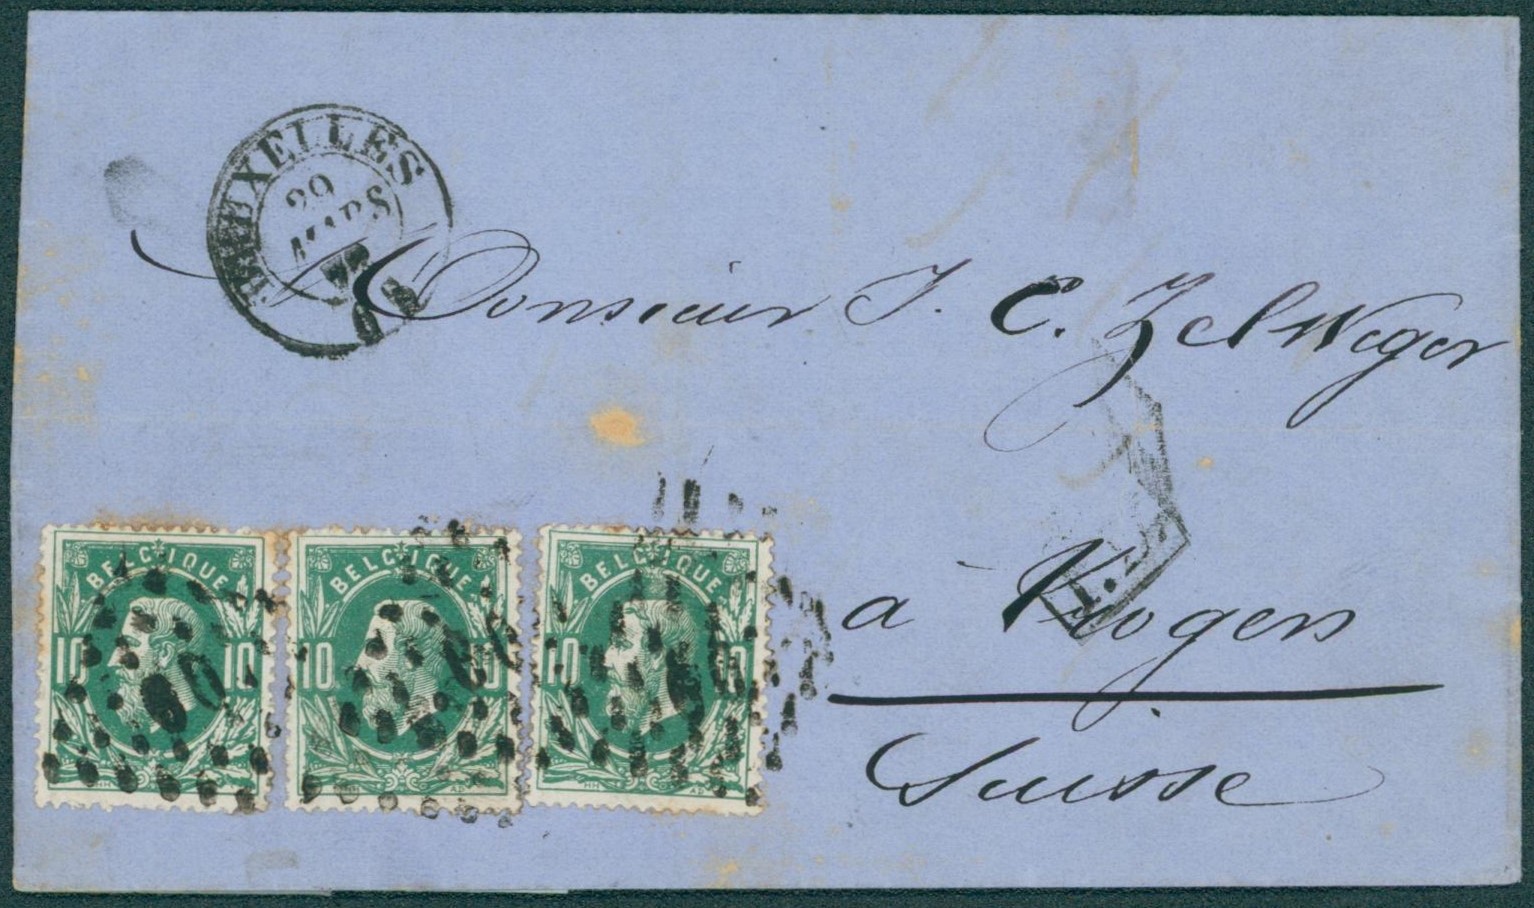 BRUXELLES
29
MARS
Monsieur J. C. Zellweger
à Trogen
Suisse
BELGIQUE
10 10
BELGIQUE
10 10
BELGIQUE
10 10
60
60
60